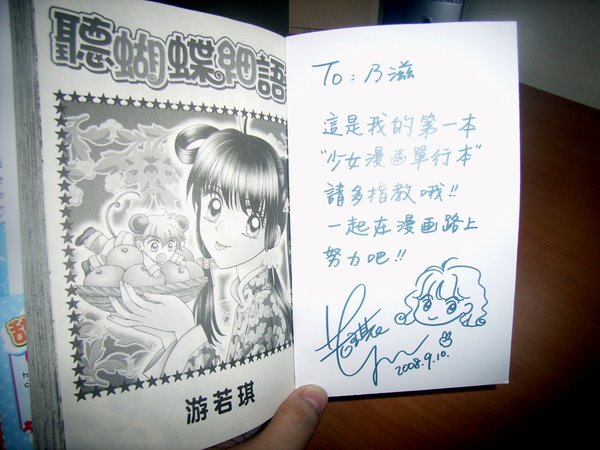 聽蝴蝶細語
游若琪
To：乃滋
這是我的第一本
“少女漫画單行本”
請多指教哦!!
一起在漫画路上
努力吧!!
若琪
2008.9.10.